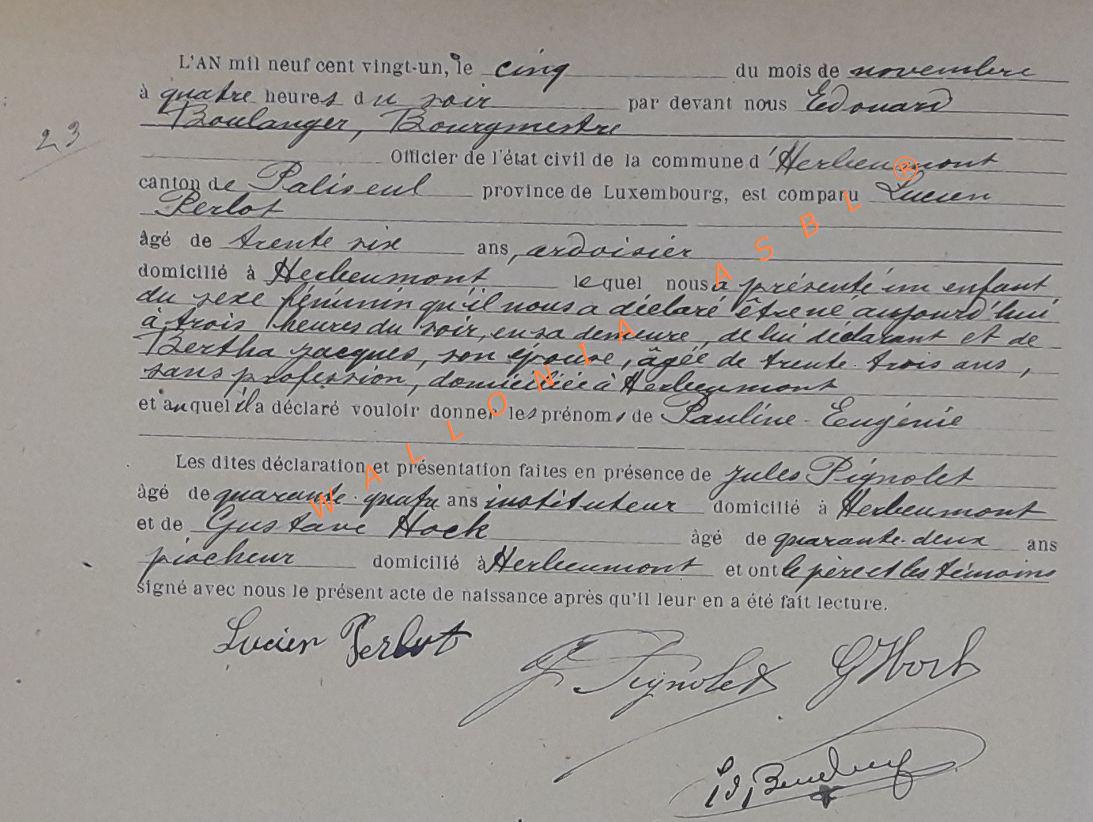 L'AN mil neuf cent vingt-un, le cinq du mois de novembre
à quatre heures du soir par devant nous Edouard
Boulanger, Bourgmestre
23
Officier de l'état civil de la commune d'Herbeumont
canton de Paliseul province de Luxembourg, est comparu Lucien
Perlot
âgé de trente six ans, ardoisier
domicilié à Herbeumont lequel nous a présenté un enfant
du sexe féminin qu'il nous a déclaré être né aujourd'hui
à trois heures du soir, en sa demeure, de lui déclarant et de
Bertha Jacques, son épouse, âgée de trente-trois ans,
sans profession, domiciliée à Herbeumont
et auquel il a déclaré vouloir donner les prénoms de Pauline-Eugénie
Les dites déclaration et présentation faites en présence de Jules Pignolet
âgé de quarante-quatre ans instituteur domicilié à Herbeumont
et de Gustave Hock âgé de quarante-deux ans
piocheur domicilié à Herbeumont et ont le père et les témoins
signé avec nous le présent acte de naissance après qu'il leur en a été fait lecture.
Lucien Perlot
J Pignolet
G Hock
WALLONIA ASBL ®